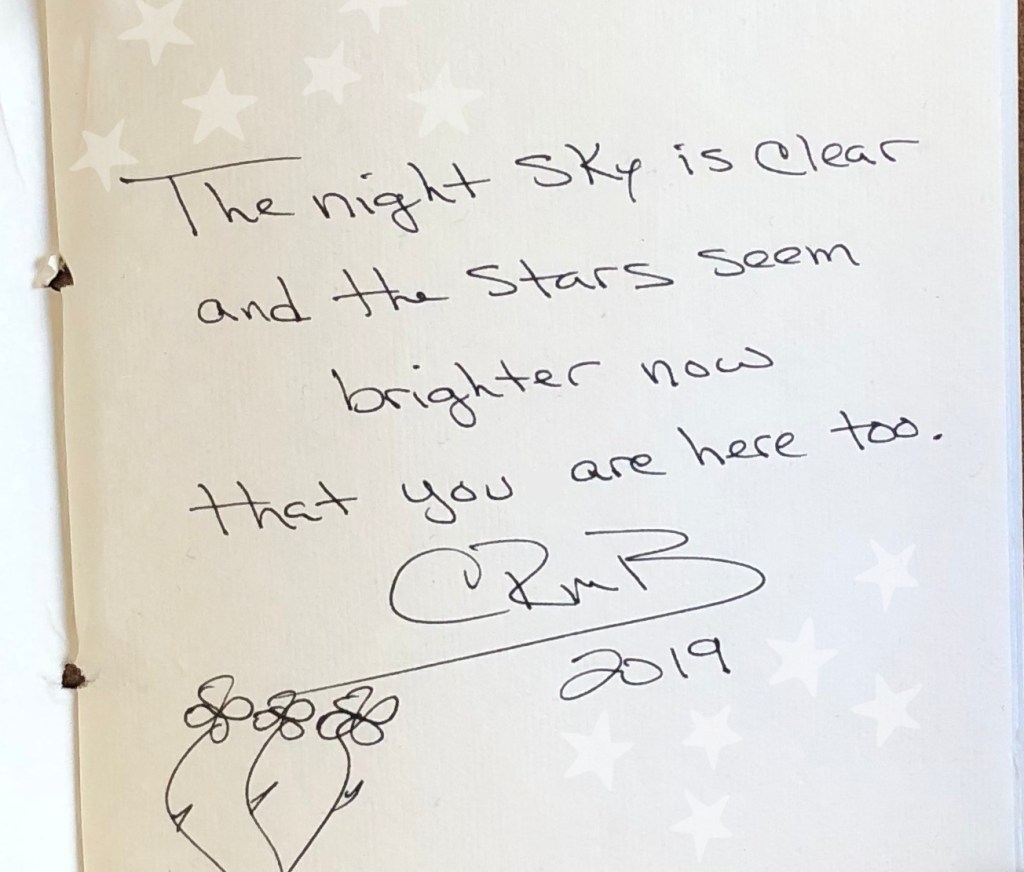 The night sky is clear
and the stars seem
brighter now
that you are here too.
2019